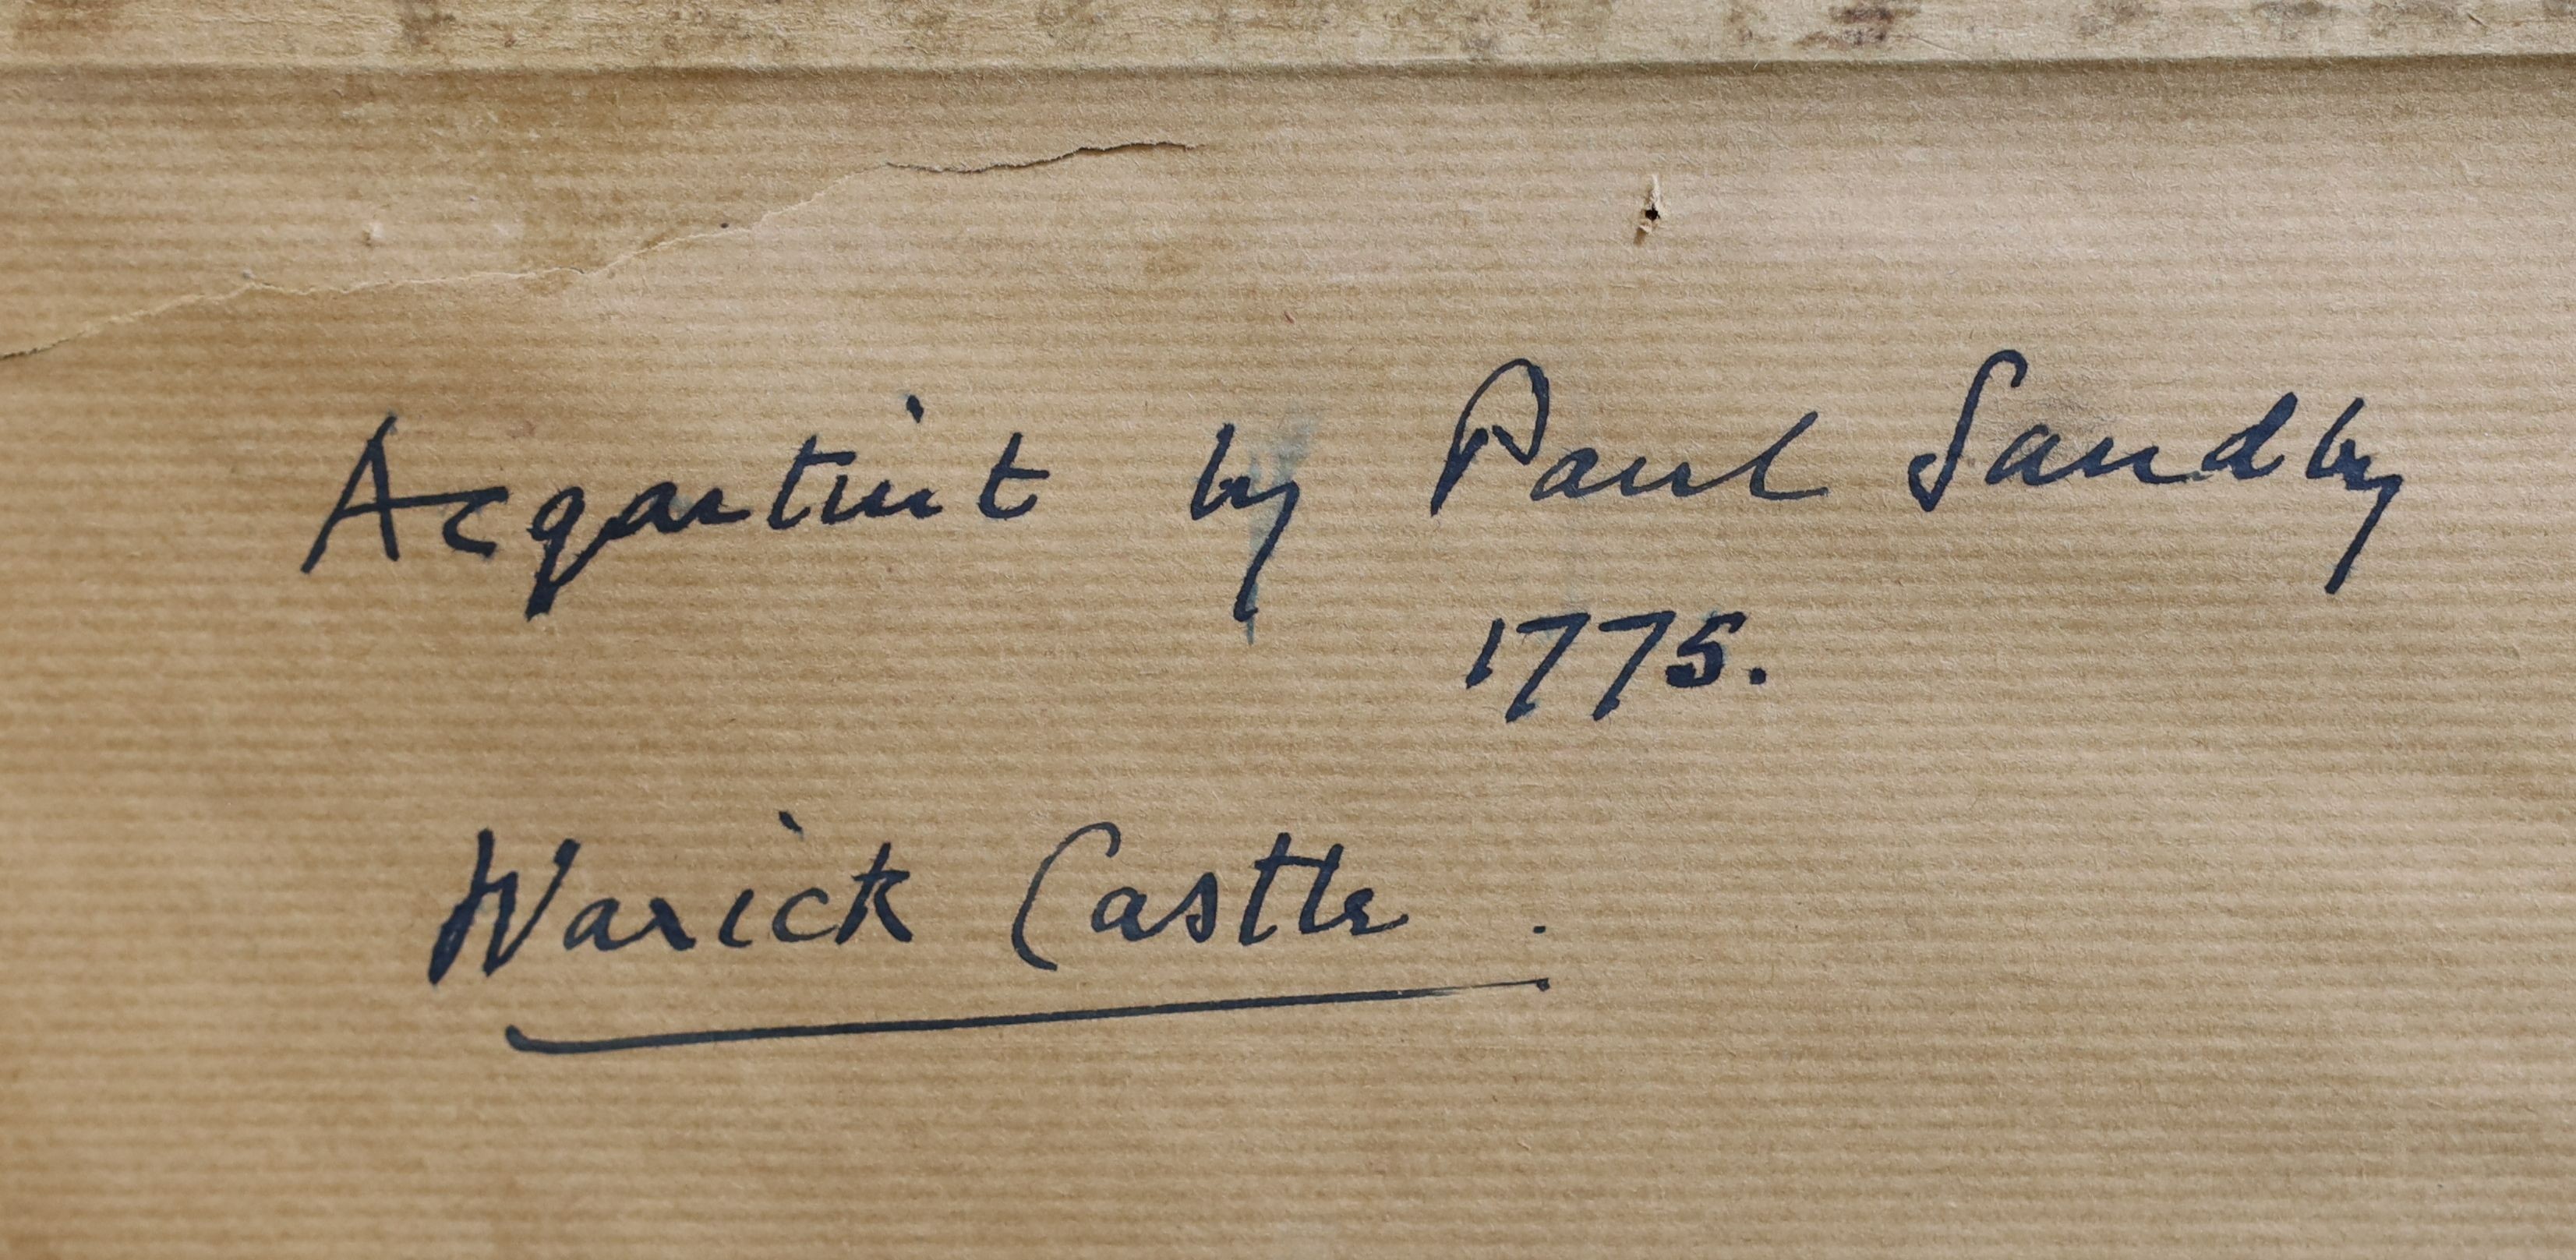 Acqartint by Paul Sandby
1775.
Warick Castle.